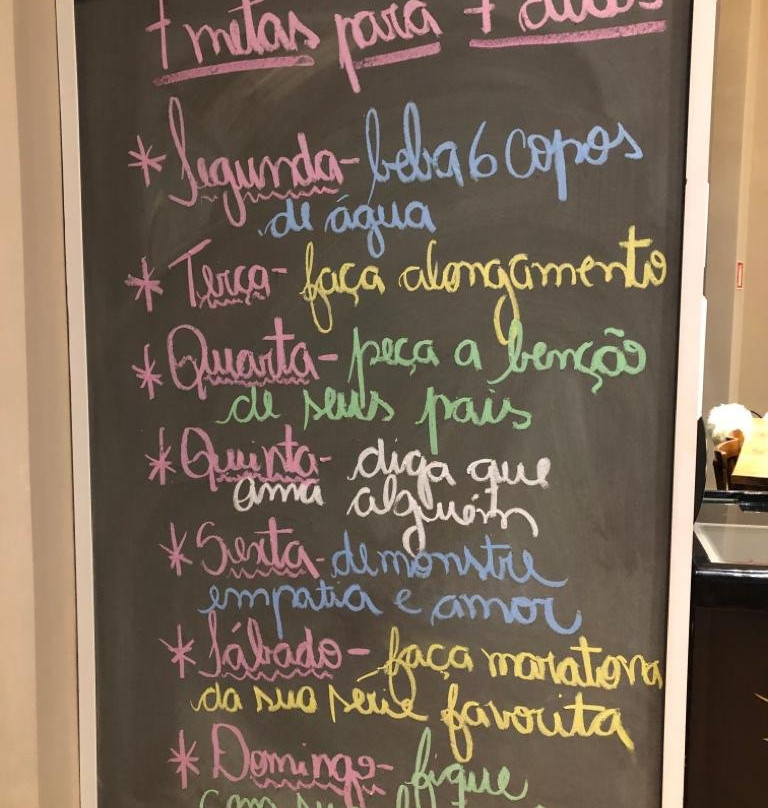 7 metas para 7 dias
* Segunda- beba 6 copos
de água
* Terça- faça alongamento
* Quarta- peça a benção
de seus pais
* Quinta- diga que
ama alguém
* Sexta- demonstre
empatia e amor
* Sábado- faça maratona
da sua série favorita
* Domingo- fique
com sua